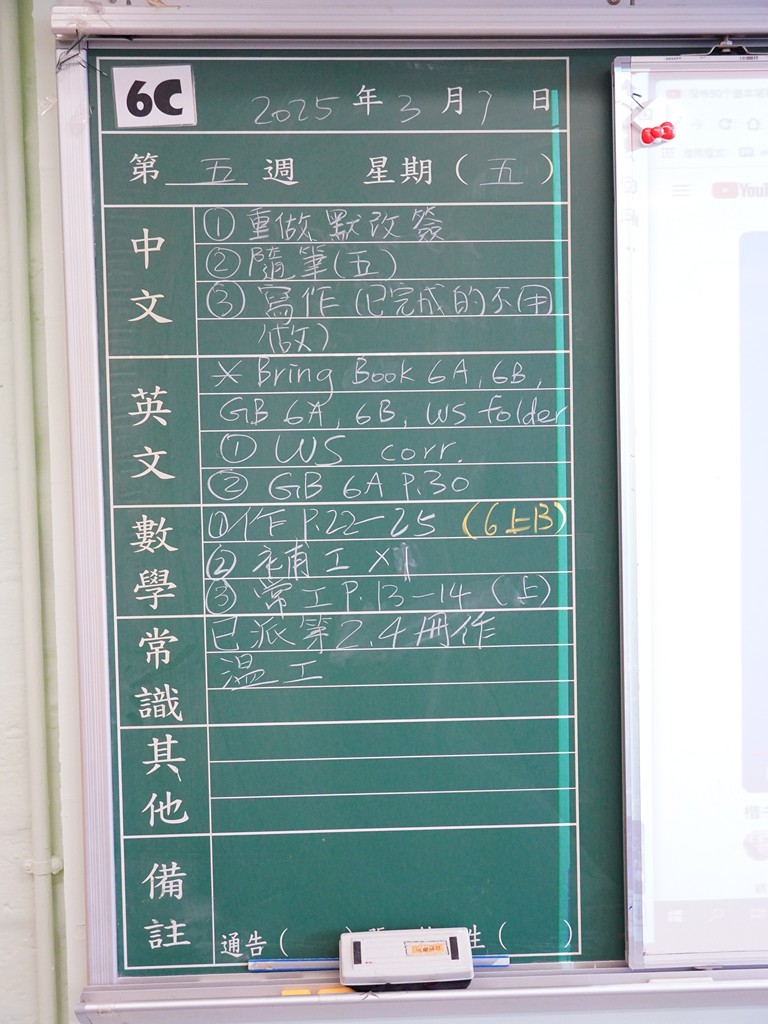 6C
2025年3月7日
第五週 星期(五)
中文
①重做默改簽
②隨筆(五)
③寫作(已完成的不用
做)
英文
* Bring Book 6A, 6B,
GB 6A, 6B, WS folder
① WS corr.
② GB 6A P.30
數學
①作 P.22-25 (6上B)
②補工 X1
③常工 P.13-14 (上)
常識
已派第2,4冊作
溫工
其他
備註
通告( ) ( )
YouT